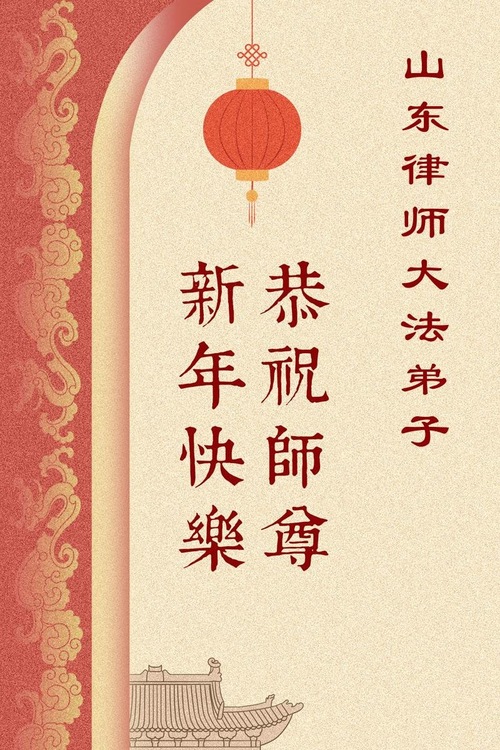 山东律师大法弟子
恭祝師尊
新年快樂